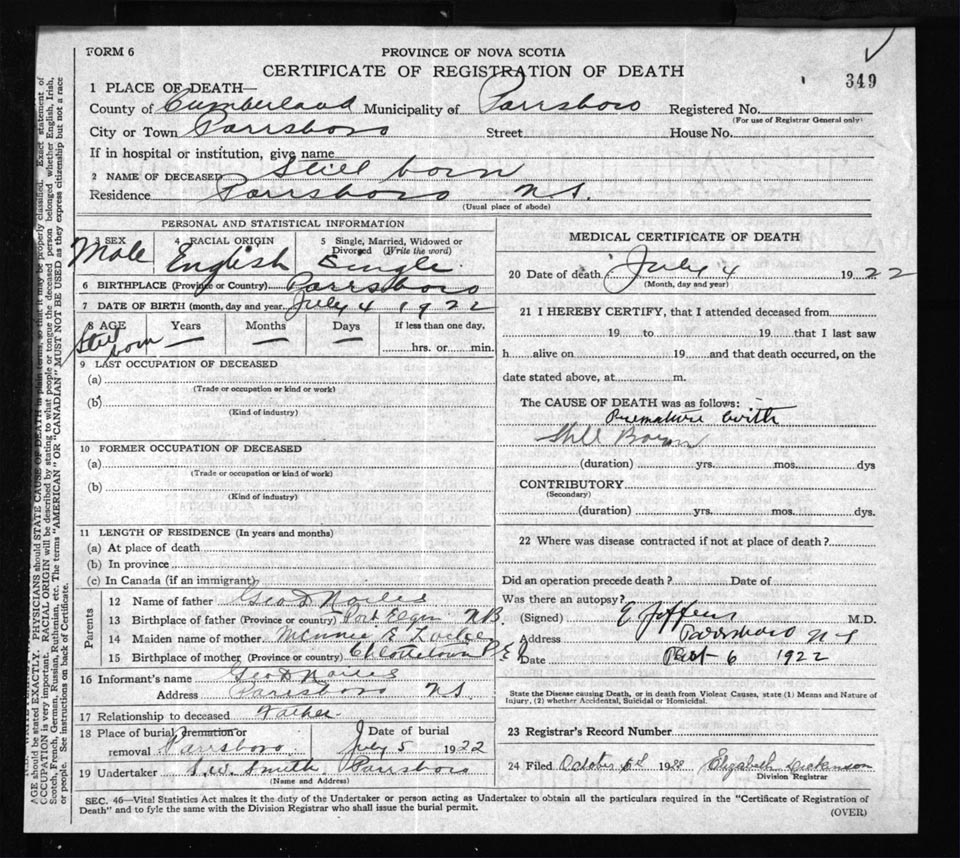 FORM 6
PROVINCE OF NOVA SCOTIA
CERTIFICATE OF REGISTRATION OF DEATH
349
1 PLACE OF DEATH—
County of Cumberland Municipality of Parrsboro Registered No.
(For use of Registrar General only)
City or Town Parrsboro Street House No.
If in hospital or institution, give name
2 NAME OF DECEASED Still born
Residence Parrsboro N.S.
(Usual place of abode)
PERSONAL AND STATISTICAL INFORMATION
3 SEX Male
4 RACIAL ORIGIN English
5 Single, Married, Widowed or Divorced (Write the word) Single
6 BIRTHPLACE (Province or Country) Parrsboro
7 DATE OF BIRTH (month, day and year) July 4 1922
8 AGE Still born
Years — Months — Days —
If less than one day,
hrs. or min.
9 LAST OCCUPATION OF DECEASED
(a)
(Trade or occupation or kind or work)
(b)
(Kind of industry)
10 FORMER OCCUPATION OF DECEASED
(a)
(Trade or occupation or kind of work)
(b)
(Kind of industry)
11 LENGTH OF RESIDENCE (In years and months)
(a) At place of death
(b) In province
(c) In Canada (if an immigrant)
Parents
12 Name of father Geo D
13 Birthplace of father (Province or country) Port Elgin N.B.
14 Maiden name of mother Minnie E
15 Birthplace of mother (Province or country) P E I
16 Informant's name Geo D
Address Parrsboro N.S.
17 Relationship to deceased Father
18 Place of burial, cremation or removal Parrsboro
Date of burial July 5 1922
19 Undertaker S.W. Smith Parrsboro
(Name and Address)
MEDICAL CERTIFICATE OF DEATH
20 Date of death July 4 1922
(Month, day and year)
21 I HEREBY CERTIFY, that I attended deceased from
19 to 19 that I last saw
h alive on 19 and that death occurred, on the
date stated above, at m.
The CAUSE OF DEATH was as follows:
Premature birth
Still Born
(duration) yrs. mos. dys
CONTRIBUTORY
(Secondary)
(duration) yrs. mos. dys.
22 Where was disease contracted if not at place of death?
Did an operation precede death? Date of
Was there an autopsy?
(Signed) M.D.
Address Parrsboro N S
Date 6 1922
State the Disease causing Death, or in death from Violent Causes, state (1) Means and Nature of
Injury, (2) whether Accidental, Suicidal or Homicidal.
23 Registrar's Record Number
24 Filed October 19 Elizabeth Dickinson
Division Registrar
SEC. 46—Vital Statistics Act makes it the duty of the Undertaker or person acting as Undertaker to obtain all the particulars required in the "Certificate of Registration of
Death" and to fyle the same with the Division Registrar who shall issue the burial permit.
(OVER)
AGE should be stated EXACTLY. PHYSICIANS should STATE CAUSE OF DEATH in plain terms, so that it may be properly classified. Exact statement of
OCCUPATION is very important. RACIAL ORIGIN will be described by stating to what people or tongue the deceased person belonged whether English, Irish,
Scotch, French, German, Russian, Ruthenian, etc. The terms "AMERICAN" OR "CANADIAN" MUST NOT BE USED as they express citizenship but not a race
or people. See instructions on back of Certificate.